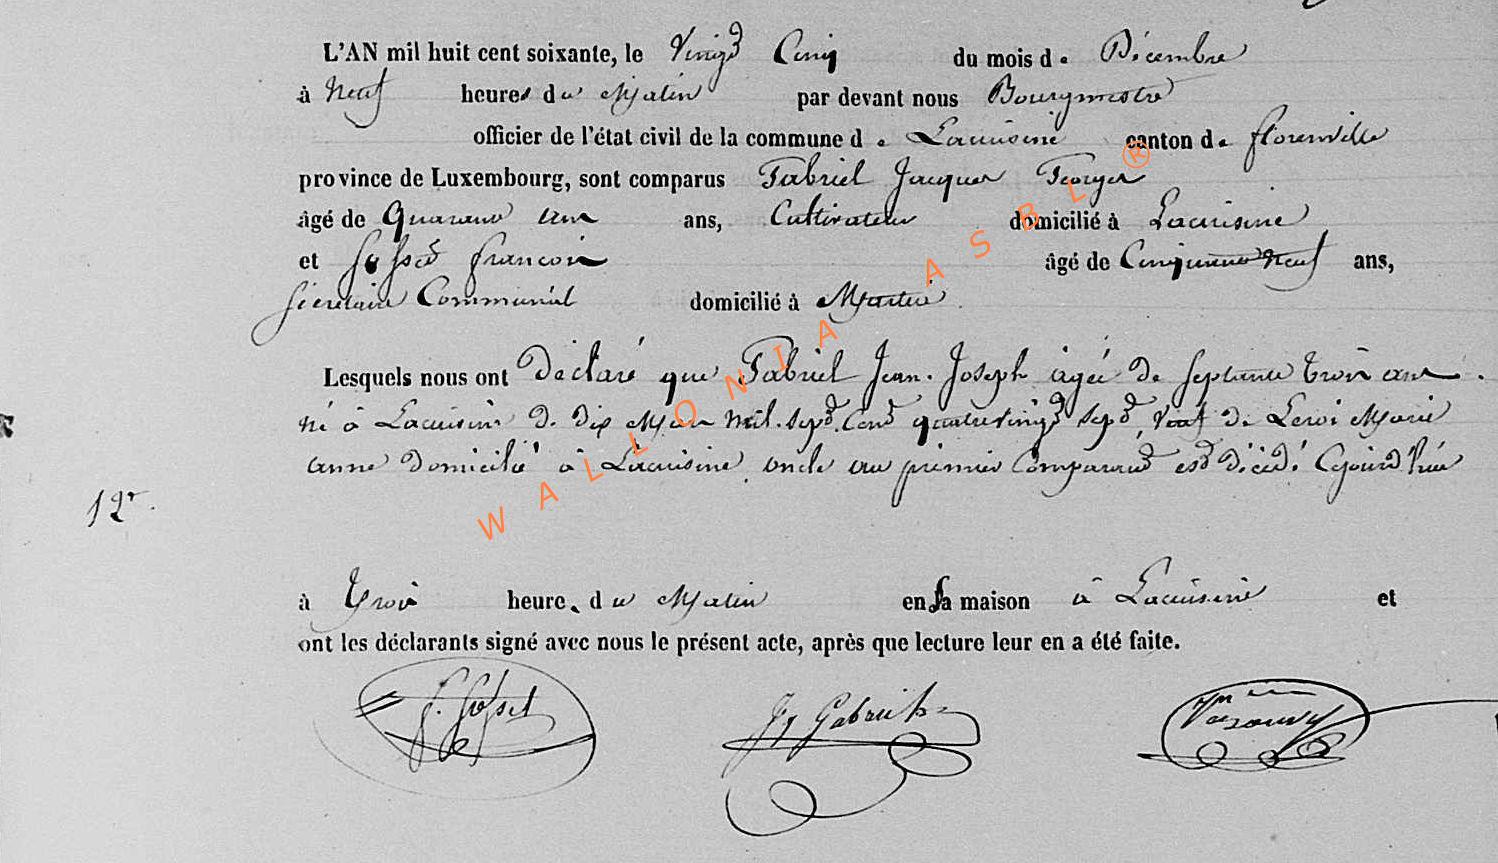 L'AN mil huit cent soixante, le Vingt Cinq du mois de Décembre
à Neuf heures du Matin par devant nous Bourgmestre
officier de l'état civil de la commune de Lacuisine canton de florenville
province de Luxembourg, sont comparus Gabriel Jacques Georges
âgé de Quarante un ans, Cultivateur domicilié à Lacuisine
et Gosset françois âgé de Cinquante Neuf ans,
Sécretaire Communal domicilié à Martué
Lesquels nous ont Déclaré que Gabriel Jean Joseph âgée de Septante trois ans
né à Lacuisine le dix Mars mil sept Cent quatrevingt sept, Veuf de Leroi Marie
anne domicilié à Lacuisine, oncle au premier Comparant est décédé Cejourd'hui
12r.
à trois heure, du Matin en sa maison à Lacuisine et
ont les déclarants signé avec nous le présent acte, après que lecture leur en a été faite.
f. Gosset JJ Gabriel
WALLONIA ASBL ®